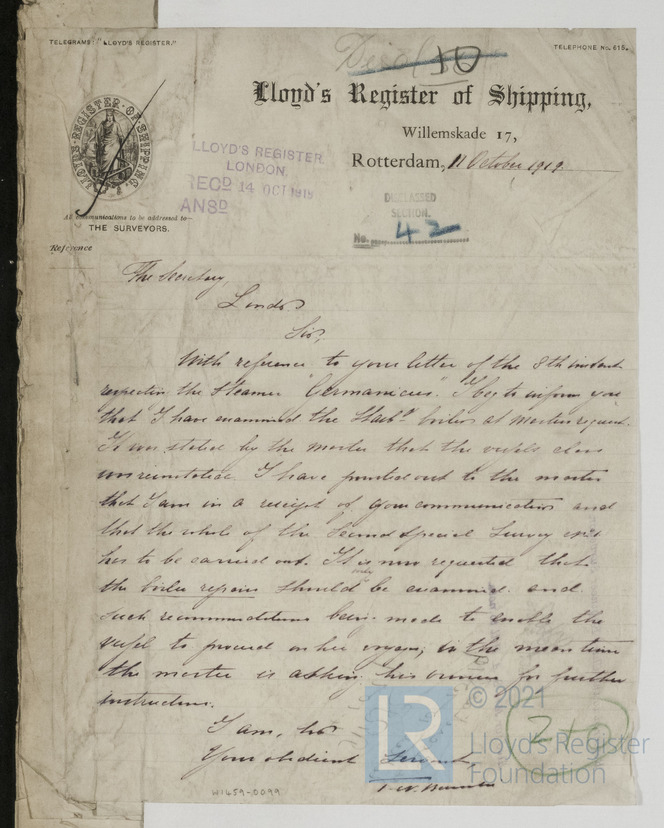 TELEGRAMS: "LLOYD'S REGISTER."
TELEPHONE No. 615.
10
Lloyd's Register of Shipping,
Willemskade 17,
Rotterdam, 11 October 1919.
LLOYD'S REGISTER OF SHIPPING.
LLOYD'S REGISTER,
LONDON.
RECD 14 OCT 1919
ANSD
DISCLASSED
SECTION.
No. 42
All communications to be addressed to—
THE SURVEYORS.
Reference
The Secretary,
London
Sir,
With reference to your letter of the 8th instant
respecting the steamer "Germanicus". I beg to inform you
that I have examined the Starbd boiler at masters request.
It was stated by the master that the vessels class
I have pointed out to the master
that I am in a receipt of your communication and
that the whole of the Second Special Survey No 1
has to be carried out. It is now requested that
the boiler repairs only should be examined and
such recommendations being made to enable the
vessel to proceed on her voyage, in the mean time
the master is asking his owners for further
instructions.
I am, Sir
Your obedient Servant,
W1459-0099
240
LR
© 2021
Lloyd's Register
Foundation